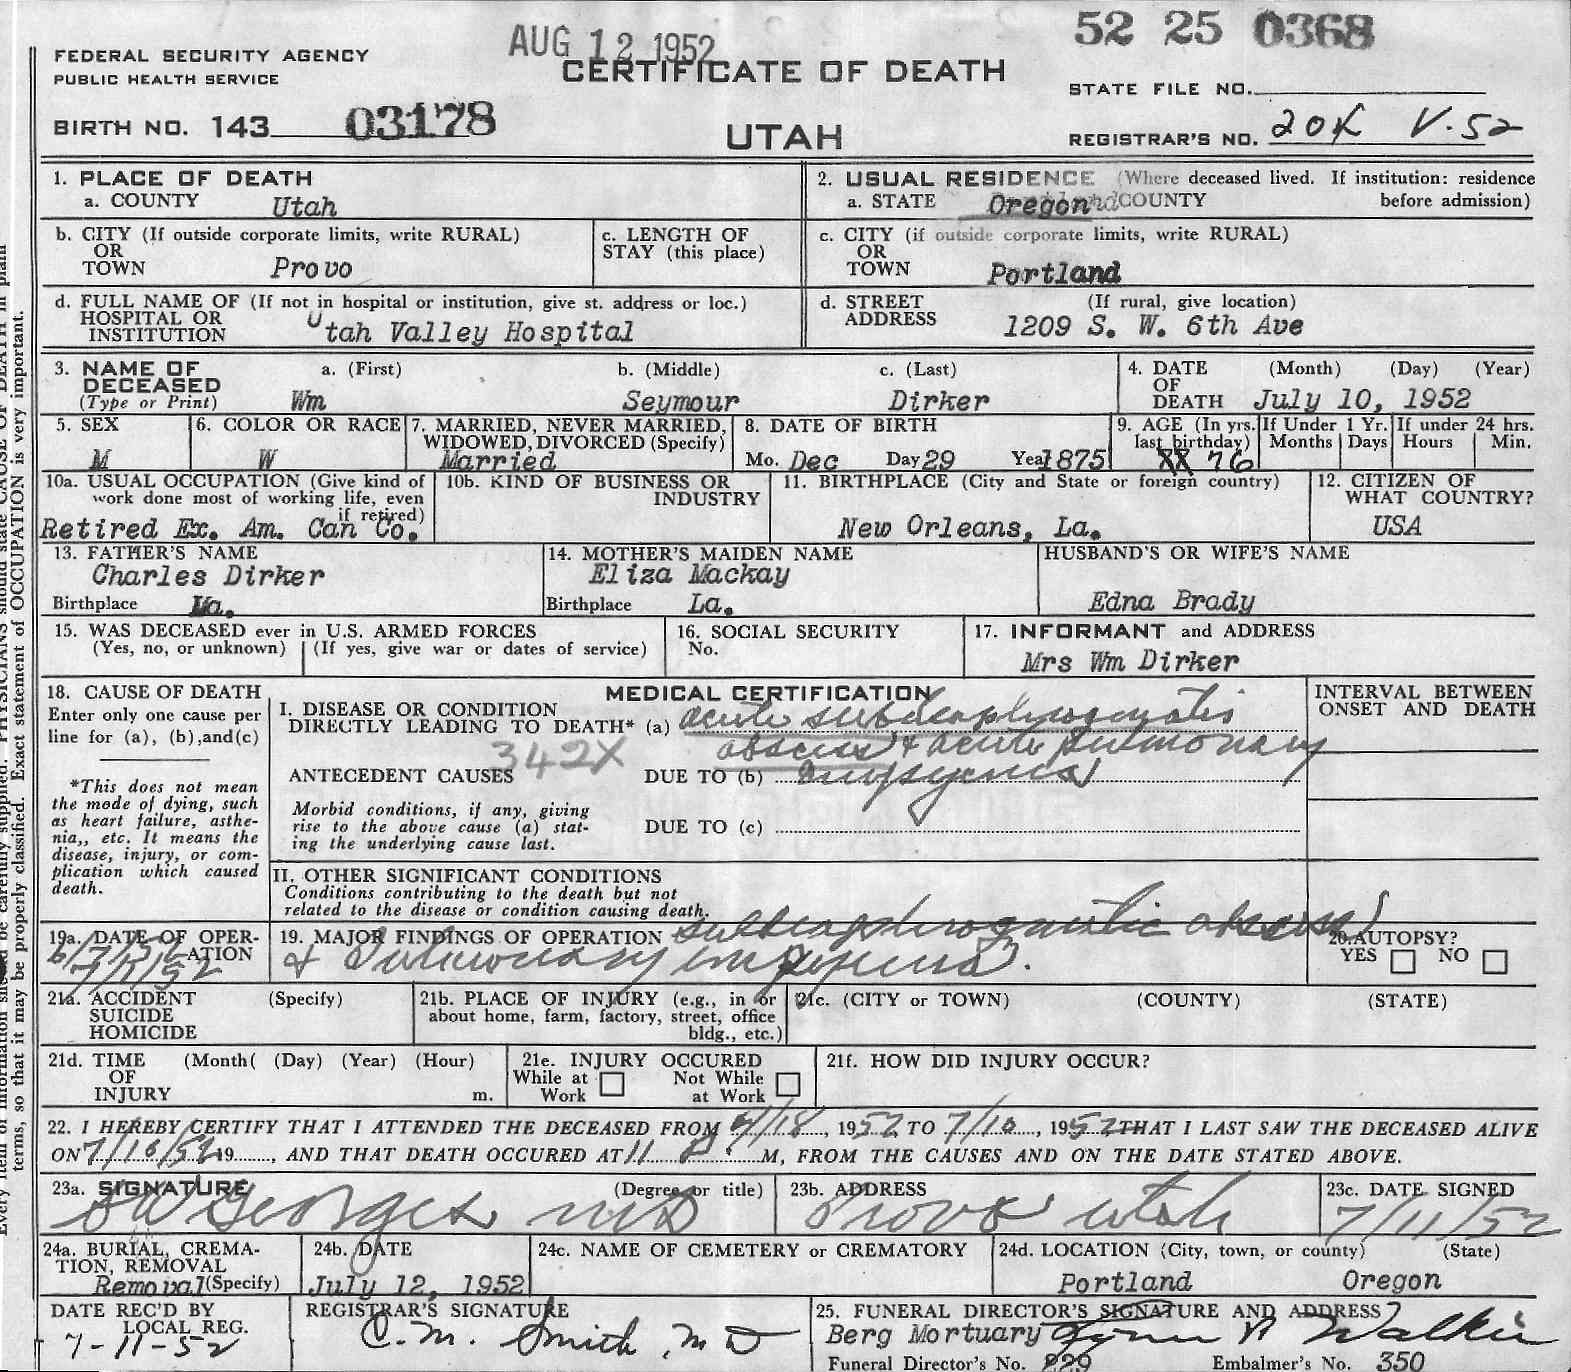 AUG 12 1952
52 25 0368
FEDERAL SECURITY AGENCY
PUBLIC HEALTH SERVICE
CERTIFICATE OF DEATH
STATE FILE NO.
BIRTH NO. 143 03178
UTAH
REGISTRAR'S NO. 20X V-52
1. PLACE OF DEATH
a. COUNTY Utah
2. USUAL RESIDENCE (Where deceased lived. If institution: residence before admission)
a. STATE Oregon COUNTY
b. CITY (If outside corporate limits, write RURAL)
OR
TOWN Provo
c. LENGTH OF
STAY (this place)
c. CITY (if outside corporate limits, write RURAL)
OR
TOWN Portland
d. FULL NAME OF (If not in hospital or institution, give st. address or loc.)
HOSPITAL OR
INSTITUTION Utah Valley Hospital
d. STREET (If rural, give location)
ADDRESS 1209 S. W. 6th Ave
3. NAME OF DECEASED
(Type or Print)
a. (First) Wm
b. (Middle) Seymour
c. (Last) Dirker
4. DATE OF DEATH (Month) (Day) (Year)
July 10, 1952
5. SEX
M
6. COLOR OR RACE
W
7. MARRIED, NEVER MARRIED,
WIDOWED, DIVORCED (Specify)
Married
8. DATE OF BIRTH
Mo. Dec Day 29 Year 1875
9. AGE (In yrs. last birthday) 76
If Under 1 Yr. Months Days
If under 24 hrs. Hours Min.
10a. USUAL OCCUPATION (Give kind of
work done most of working life, even
if retired)
Retired Ex. Am. Can Co.
10b. KIND OF BUSINESS OR
INDUSTRY
11. BIRTHPLACE (City and State or foreign country)
New Orleans, La.
12. CITIZEN OF
WHAT COUNTRY?
USA
13. FATHER'S NAME
Charles Dirker
Birthplace La.
14. MOTHER'S MAIDEN NAME
Eliza Mackay
Birthplace La.
HUSBAND'S OR WIFE'S NAME
Edna Brady
15. WAS DECEASED ever in U.S. ARMED FORCES
(Yes, no, or unknown) (If yes, give war or dates of service)
16. SOCIAL SECURITY
No.
17. INFORMANT and ADDRESS
Mrs Wm Dirker
18. CAUSE OF DEATH
Enter only one cause per
line for (a), (b), and (c)
*This does not mean
the mode of dying, such
as heart failure, asthe-
nia,, etc. It means the
disease, injury, or com-
plication which caused
death.
MEDICAL CERTIFICATION
I. DISEASE OR CONDITION
DIRECTLY LEADING TO DEATH* (a) acute
abscess & acute pulmonary
342X
ANTECEDENT CAUSES DUE TO (b)
Morbid conditions, if any, giving
rise to the above cause (a) stat-
ing the underlying cause last.
DUE TO (c)
II. OTHER SIGNIFICANT CONDITIONS
Conditions contributing to the death but not
related to the disease or condition causing death.
INTERVAL BETWEEN
ONSET AND DEATH
19a. DATE OF OPER-
ATION
19. MAJOR FINDINGS OF OPERATION
& Pulmonary
20. AUTOPSY?
YES NO
21a. ACCIDENT (Specify)
SUICIDE
HOMICIDE
21b. PLACE OF INJURY (e.g., in or
about home, farm, factory, street, office
bldg., etc.)
21c. (CITY or TOWN) (COUNTY) (STATE)
21d. TIME (Month( (Day) (Year) (Hour)
OF
INJURY m.
21e. INJURY OCCURED
While at Work Not While at Work
21f. HOW DID INJURY OCCUR?
22. I HEREBY CERTIFY THAT I ATTENDED THE DECEASED FROM /18, 1952, TO 7/10, 1952 THAT I LAST SAW THE DECEASED ALIVE
ON 7/10/52 19, AND THAT DEATH OCCURED AT 11 P M, FROM THE CAUSES AND ON THE DATE STATED ABOVE.
23a. SIGNATURE (Degree or title)
Georges MD
23b. ADDRESS
Provo Utah
23c. DATE SIGNED
7/11/52
24a. BURIAL, CREMA-
TION, REMOVAL
Removal (Specify)
24b. DATE
July 12, 1952
24c. NAME OF CEMETERY or CREMATORY
24d. LOCATION (City, town, or county) (State)
Portland Oregon
DATE REC'D BY
LOCAL REG.
7-11-52
REGISTRAR'S SIGNATURE
C. M. Smith, MD
25. FUNERAL DIRECTOR'S SIGNATURE AND ADDRESS
Berg Mortuary Lynn R Walker
Funeral Director's No. 229 Embalmer's No. 350
terms, so that it may be properly classified. Exact statement of OCCUPATION is very important.